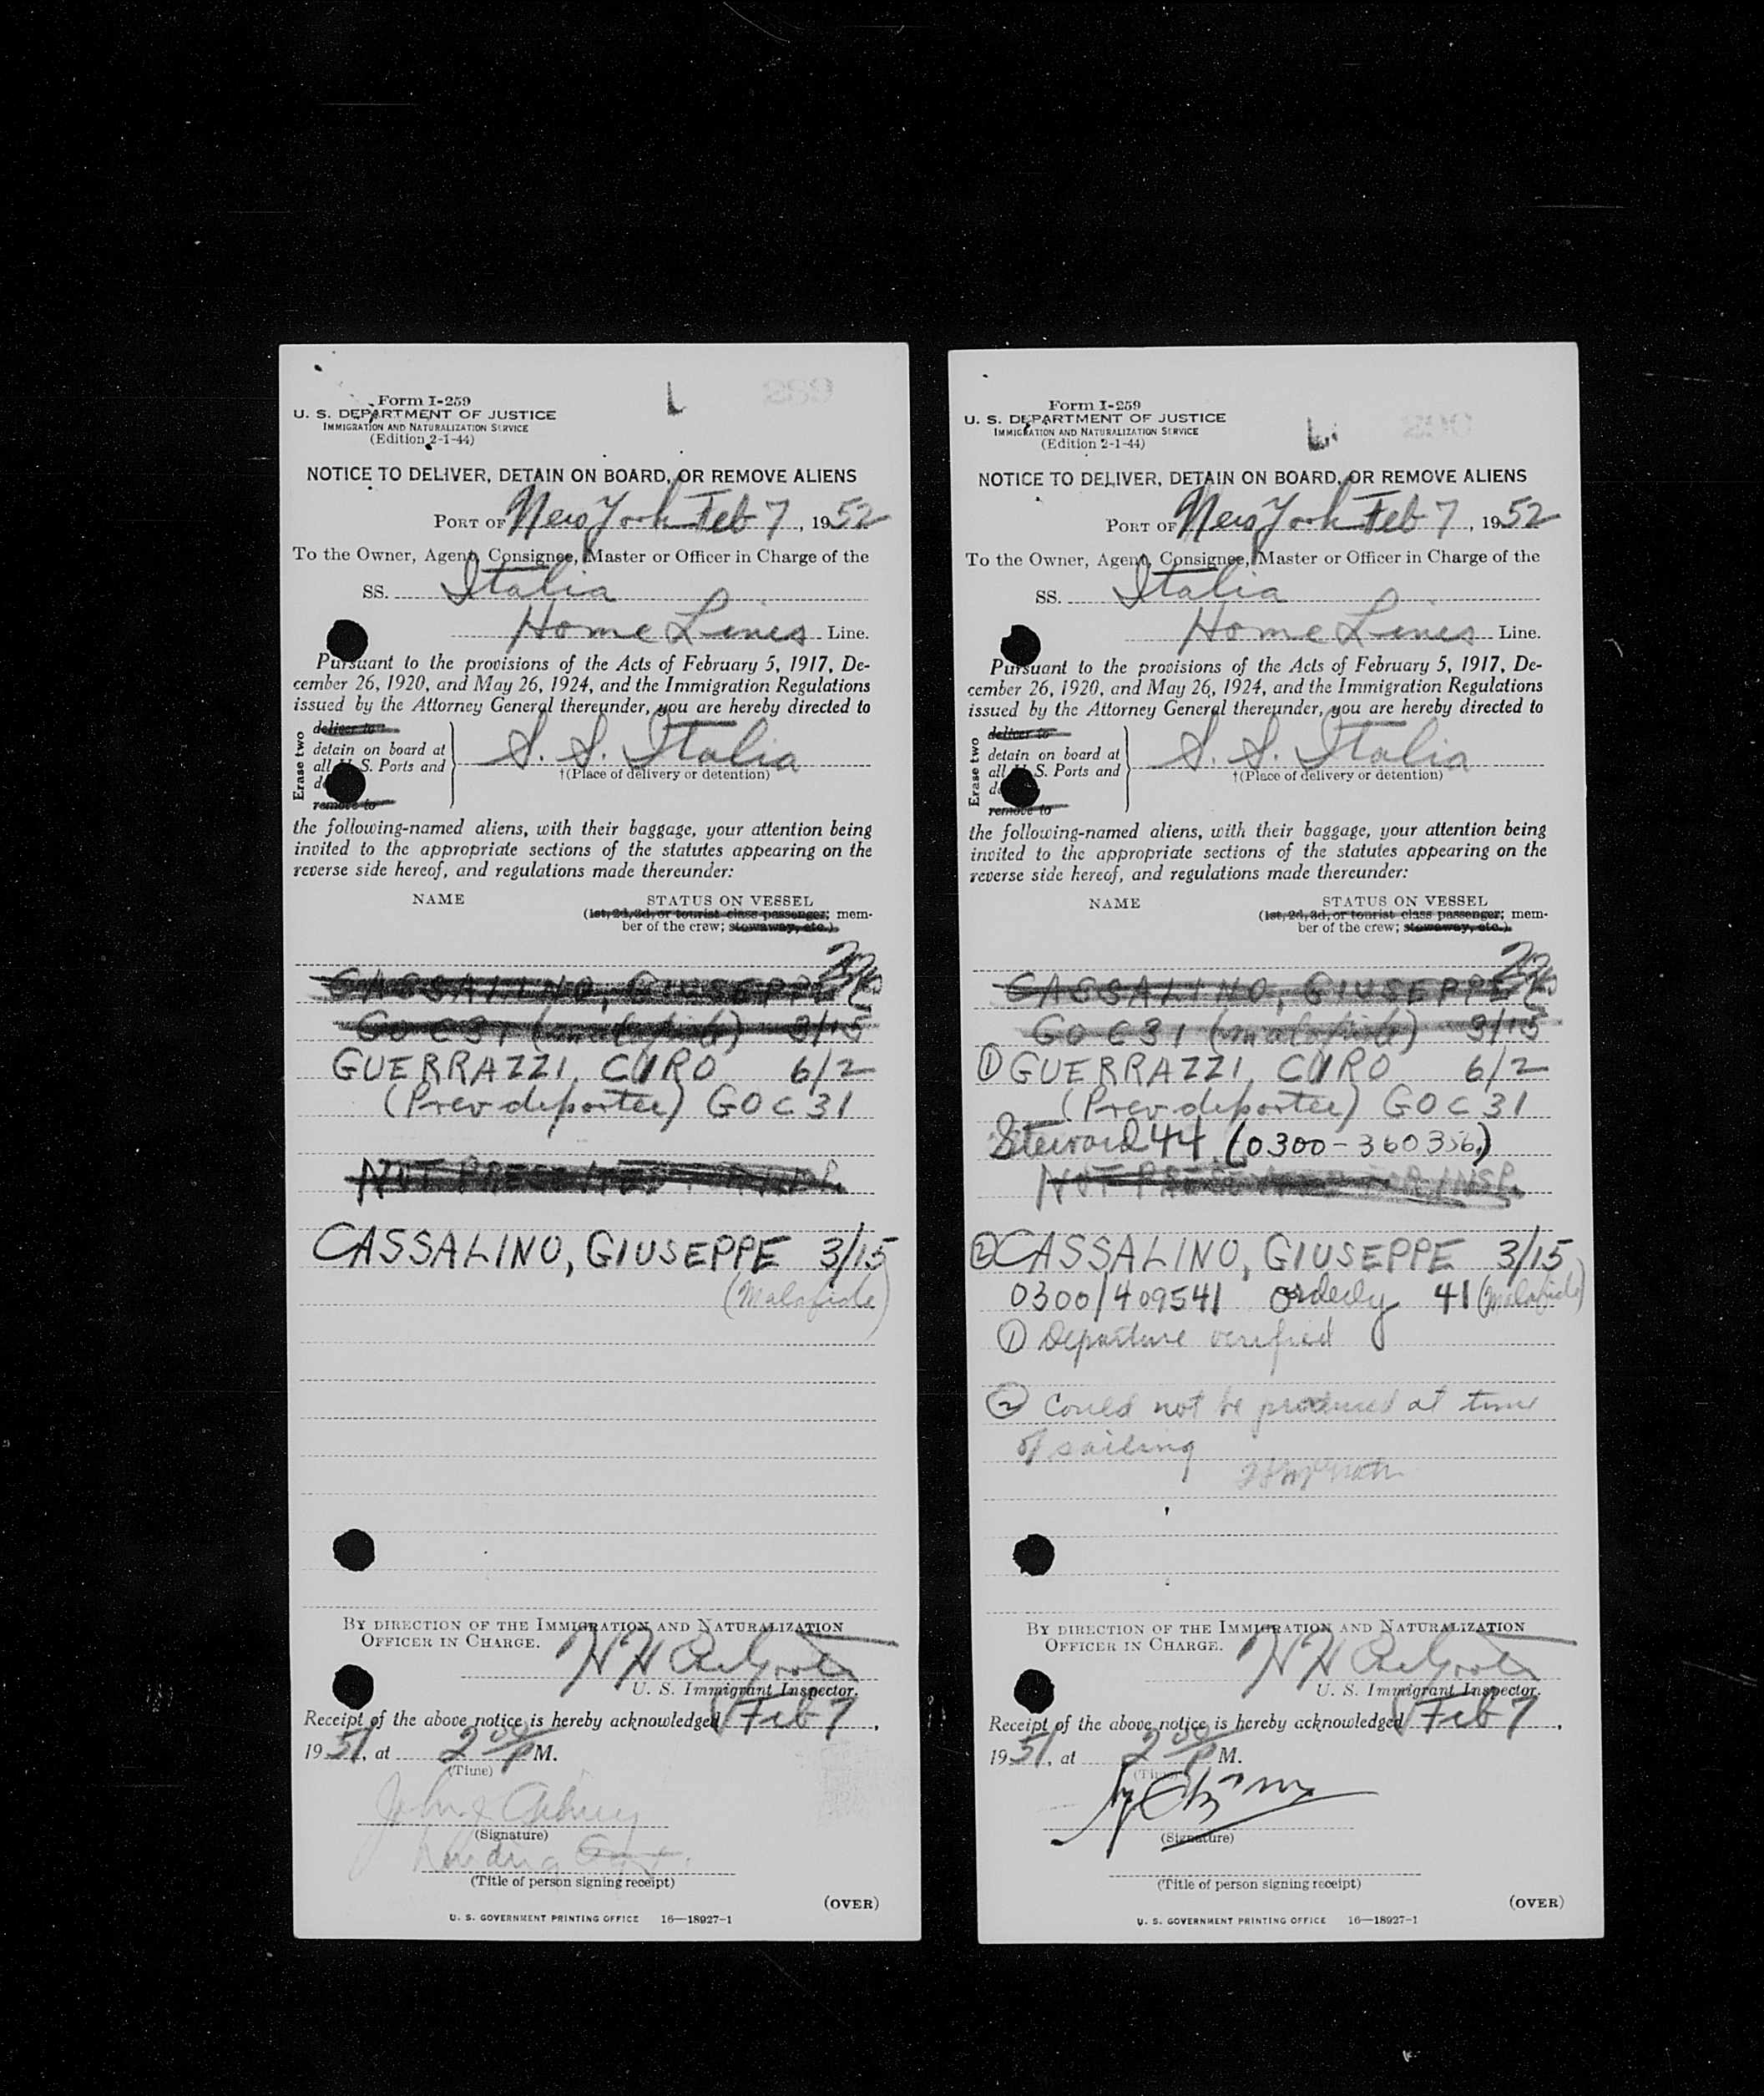 Form I-259
U. S. DEPARTMENT OF JUSTICE
IMMIGRATION AND NATURALIZATION SERVICE
(Edition 2-1-44)
NOTICE TO DELIVER, DETAIN ON BOARD, OR REMOVE ALIENS
PORT OF New York Feb 7, 1952
To the Owner, Agent, Consignee, Master or Officer in Charge of the
SS. Italia
Home Lines Line.
Pursuant to the provisions of the Acts of February 5, 1917, De-
cember 26, 1920, and May 26, 1924, and the Immigration Regulations
issued by the Attorney General thereunder, you are hereby directed to
Erase two
deliver to
detain on board at
all U. S. Ports and
remove to
S. S. Italia
†(Place of delivery or detention)
the following-named aliens, with their baggage, your attention being
invited to the appropriate sections of the statutes appearing on the
reverse side hereof, and regulations made thereunder:
NAME STATUS ON VESSEL
(1st, 2d, 3d, or tourist class passenger; mem-
ber of the crew; stowaway, etc.)
CASSALINO, GIUSEPPE
GO C 31 (malafide) 3/15
GUERRAZZI, CIRO 6/2
(Prev deportee) GO C 31
NOT PRESENTED
CASSALINO, GIUSEPPE 3/15
(Malafide)
BY DIRECTION OF THE IMMIGRATION AND NATURALIZATION
OFFICER IN CHARGE.
U. S. Immigrant Inspector.
Receipt of the above notice is hereby acknowledged Feb 7,
1951, at 2 00 P M.
(Time)
John
(Signature)
(Title of person signing receipt)
(OVER)
U. S. GOVERNMENT PRINTING OFFICE 16—18927-1
Form I-259
U. S. DEPARTMENT OF JUSTICE
IMMIGRATION AND NATURALIZATION SERVICE
(Edition 2-1-44)
NOTICE TO DELIVER, DETAIN ON BOARD, OR REMOVE ALIENS
PORT OF New York Feb 7, 1952
To the Owner, Agent, Consignee, Master or Officer in Charge of the
SS. Italia
Home Lines Line.
Pursuant to the provisions of the Acts of February 5, 1917, De-
cember 26, 1920, and May 26, 1924, and the Immigration Regulations
issued by the Attorney General thereunder, you are hereby directed to
Erase two
deliver to
detain on board at
all U. S. Ports and
remove to
S. S. Italia
†(Place of delivery or detention)
the following-named aliens, with their baggage, your attention being
invited to the appropriate sections of the statutes appearing on the
reverse side hereof, and regulations made thereunder:
NAME STATUS ON VESSEL
(1st, 2d, 3d, or tourist class passenger; mem-
ber of the crew; stowaway, etc.)
CASSALINO, GIUSEPPE
GO C 31 (malafide) 3/15
① GUERRAZZI, CIRO 6/2
(Prev deportee) GO C 31
Steward 44 (0300-360336)
NOT PRESENTED FOR INSP.
② CASSALINO, GIUSEPPE 3/15
0300/409541 orderly 41 (malafide)
① Departure verified
② Could not be produced at time
of sailing
BY DIRECTION OF THE IMMIGRATION AND NATURALIZATION
OFFICER IN CHARGE.
U. S. Immigrant Inspector.
Receipt of the above notice is hereby acknowledged Feb 7,
1951, at 2 00 P M.
(Time)
(Signature)
(Title of person signing receipt)
(OVER)
U. S. GOVERNMENT PRINTING OFFICE 16—18927-1